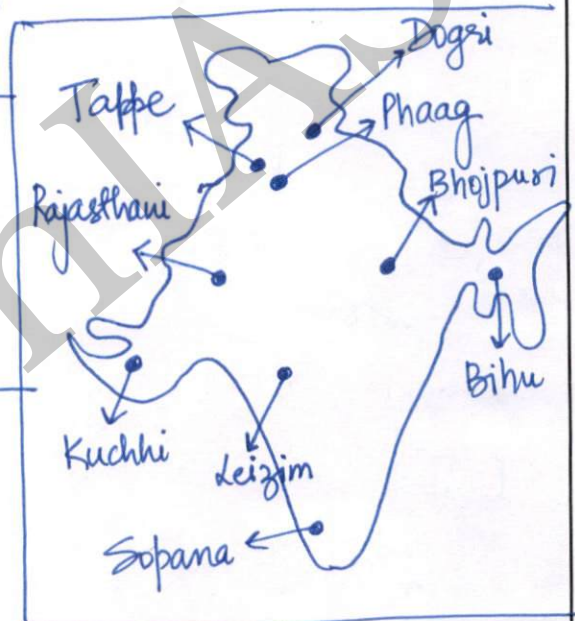 Dogri
Tappe
Phaag
Bhojpuri
Rajasthani
Bihu
Kuchhi
Leizim
Sopana